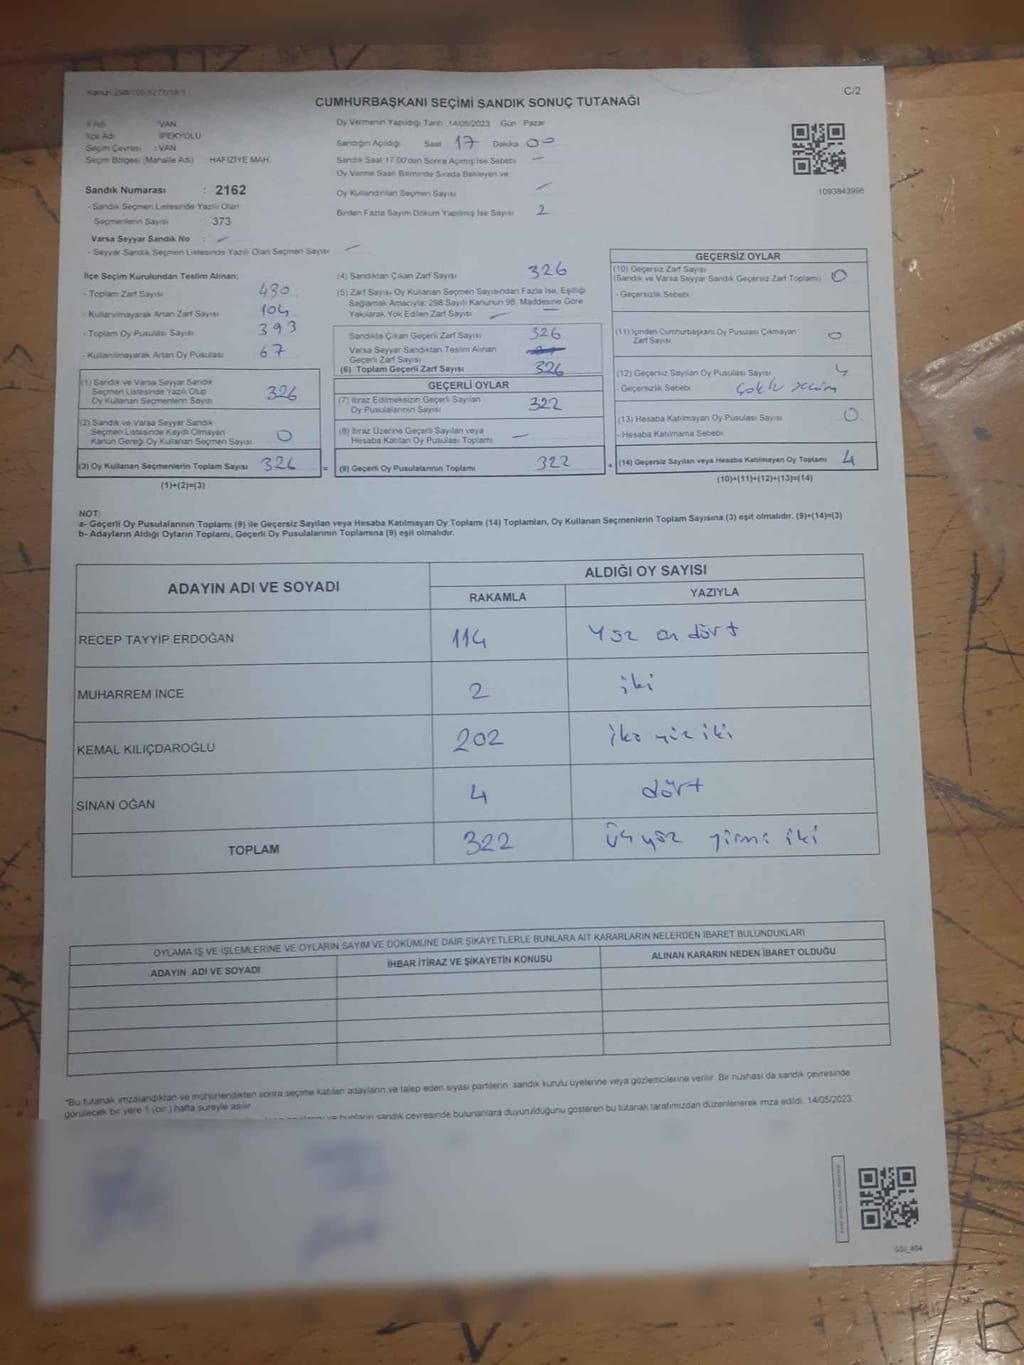 C/2
CUMHURBAŞKANI SEÇİMİ SANDIK SONUÇ TUTANAĞI
İl Adı : VAN
İlçe Adı İPEKYOLU
Seçim Çevresi : VAN
Seçim Bölgesi (Mahalle Adı) HAFIZIYE MAH.
Sandık Numarası : 2162
- Sandık Seçmen Listesinde Yazılı Olan
Seçmenlerin Sayısı : 373
Varsa Seyyar Sandık No : -
- Seyyar Sandık Seçmen Listesinde Yazılı Olan Seçmen Sayısı -
Oy Vermenin Yapıldığı Tarih :14/05/2023 Gün Pazar
Sandığın Açıldığı Saat 17 Dakika 00
Sandık Saat 17.00'den Sonra Açılmış İse Sebebi -
Oy Verme Saati Bitiminde Sırada Bekleyen ve
Oy Kullandırılan Seçmen Sayısı -
Birden Fazla Sayım Döküm Yapılmış İse Sayısı 2
1093843996
İlçe Seçim Kurulundan Teslim Alınan;
- Toplam Zarf Sayısı 430
- Kullanılmayarak Artan Zarf Sayısı 104
- Toplam Oy Pusulası Sayısı 393
- Kullanılmayarak Artan Oy Pusulası 67
(1) Sandık ve Varsa Seyyar Sandık
Seçmen Listesinde Yazılı Olup
Oy Kullanan Seçmenlerin Sayısı 326
(2) Sandık ve Varsa Seyyar Sandık
Seçmen Listesinde Kaydı Olmayan
Kanun Gereği Oy Kullanan Seçmen Sayısı 0
(3) Oy Kullanan Seçmenlerin Toplam Sayısı 326
(1)+(2)=(3)
(4) Sandıktan Çıkan Zarf Sayısı 326
(5) Zarf Sayısı Oy Kullanan Seçmen Sayısından Fazla İse, Eşitliği
Sağlamak Amacıyla; 298 Sayılı Kanunun 98. Maddesine Göre
Yakılarak Yok Edilen Zarf Sayısı -
Sandıkta Çıkan Geçerli Zarf Sayısı 326
Varsa Seyyar Sandıktan Teslim Alınan
Geçerli Zarf Sayısı
(6) Toplam Geçerli Zarf Sayısı 326
GEÇERLİ OYLAR
(7) İtiraz Edilmeksizin Geçerli Sayılan
Oy Pusulalarının Sayısı 322
(8) İtiraz Üzerine Geçerli Sayılan veya
Hesaba Katılan Oy Pusulası Toplamı -
(9) Geçerli Oy Pusulalarının Toplamı 322
GEÇERSİZ OYLAR
(10) Geçersiz Zarf Sayısı
(Sandık ve Varsa Seyyar Sandık Geçersiz Zarf Toplamı) 0
- Geçersizlik Sebebi
(11) İçinden Cumhurbaşkanı Oy Pusulası Çıkmayan
Zarf Sayısı 0
(12) Geçersiz Sayılan Oy Pusulası Sayısı 4
- Geçersizlik Sebebi
(13) Hesaba Katılmayan Oy Pusulası Sayısı 0
- Hesaba Katılmama Sebebi
(14) Geçersiz Sayılan veya Hesaba Katılmayan Oy Toplamı 4
(10)+(11)+(12)+(13)=(14)
NOT:
a- Geçerli Oy Pusulalarının Toplamı (9) ile Geçersiz Sayılan veya Hesaba Katılmayan Oy Toplamı (14) Toplamları, Oy Kullanan Seçmenlerin Toplam Sayısına (3) eşit olmalıdır. (9)+(14)=(3)
b- Adayların Aldığı Oyların Toplamı, Geçerli Oy Pusulalarının Toplamına (9) eşit olmalıdır.
ADAYIN ADI VE SOYADI
ALDIĞI OY SAYISI
RAKAMLA YAZIYLA
RECEP TAYYİP ERDOĞAN 114 yüz on dört
MUHARREM İNCE 2 iki
KEMAL KILIÇDAROĞLU 202 iki yüz iki
SİNAN OĞAN 4 dört
TOPLAM 322 üç yüz yirmi iki
OYLAMA İŞ VE İŞLEMLERİNE VE OYLARIN SAYIM VE DÖKÜMÜNE DAİR ŞİKAYETLERLE BUNLARA AİT KARARLARIN NELERDEN İBARET BULUNDUKLARI
ADAYIN ADI VE SOYADI İHBAR İTİRAZ VE ŞİKAYETİN KONUSU ALINAN KARARIN NEDEN İBARET OLDUĞU
*Bu tutanak imzalandıktan ve mühürlendikten sonra seçime katılan adayların ve talep eden siyasi partilerin sandık kurulu üyelerine veya gözlemcilerine verilir. Bir nüshası da sandık çevresinde
görülecek bir yere 1 (bir) hafta süreyle asılır.
sandık çevresinde bulunanlara duyurulduğunu gösteren bu tutanak tarafımızdan düzenlenerek imza edildi. 14/05/2023
B